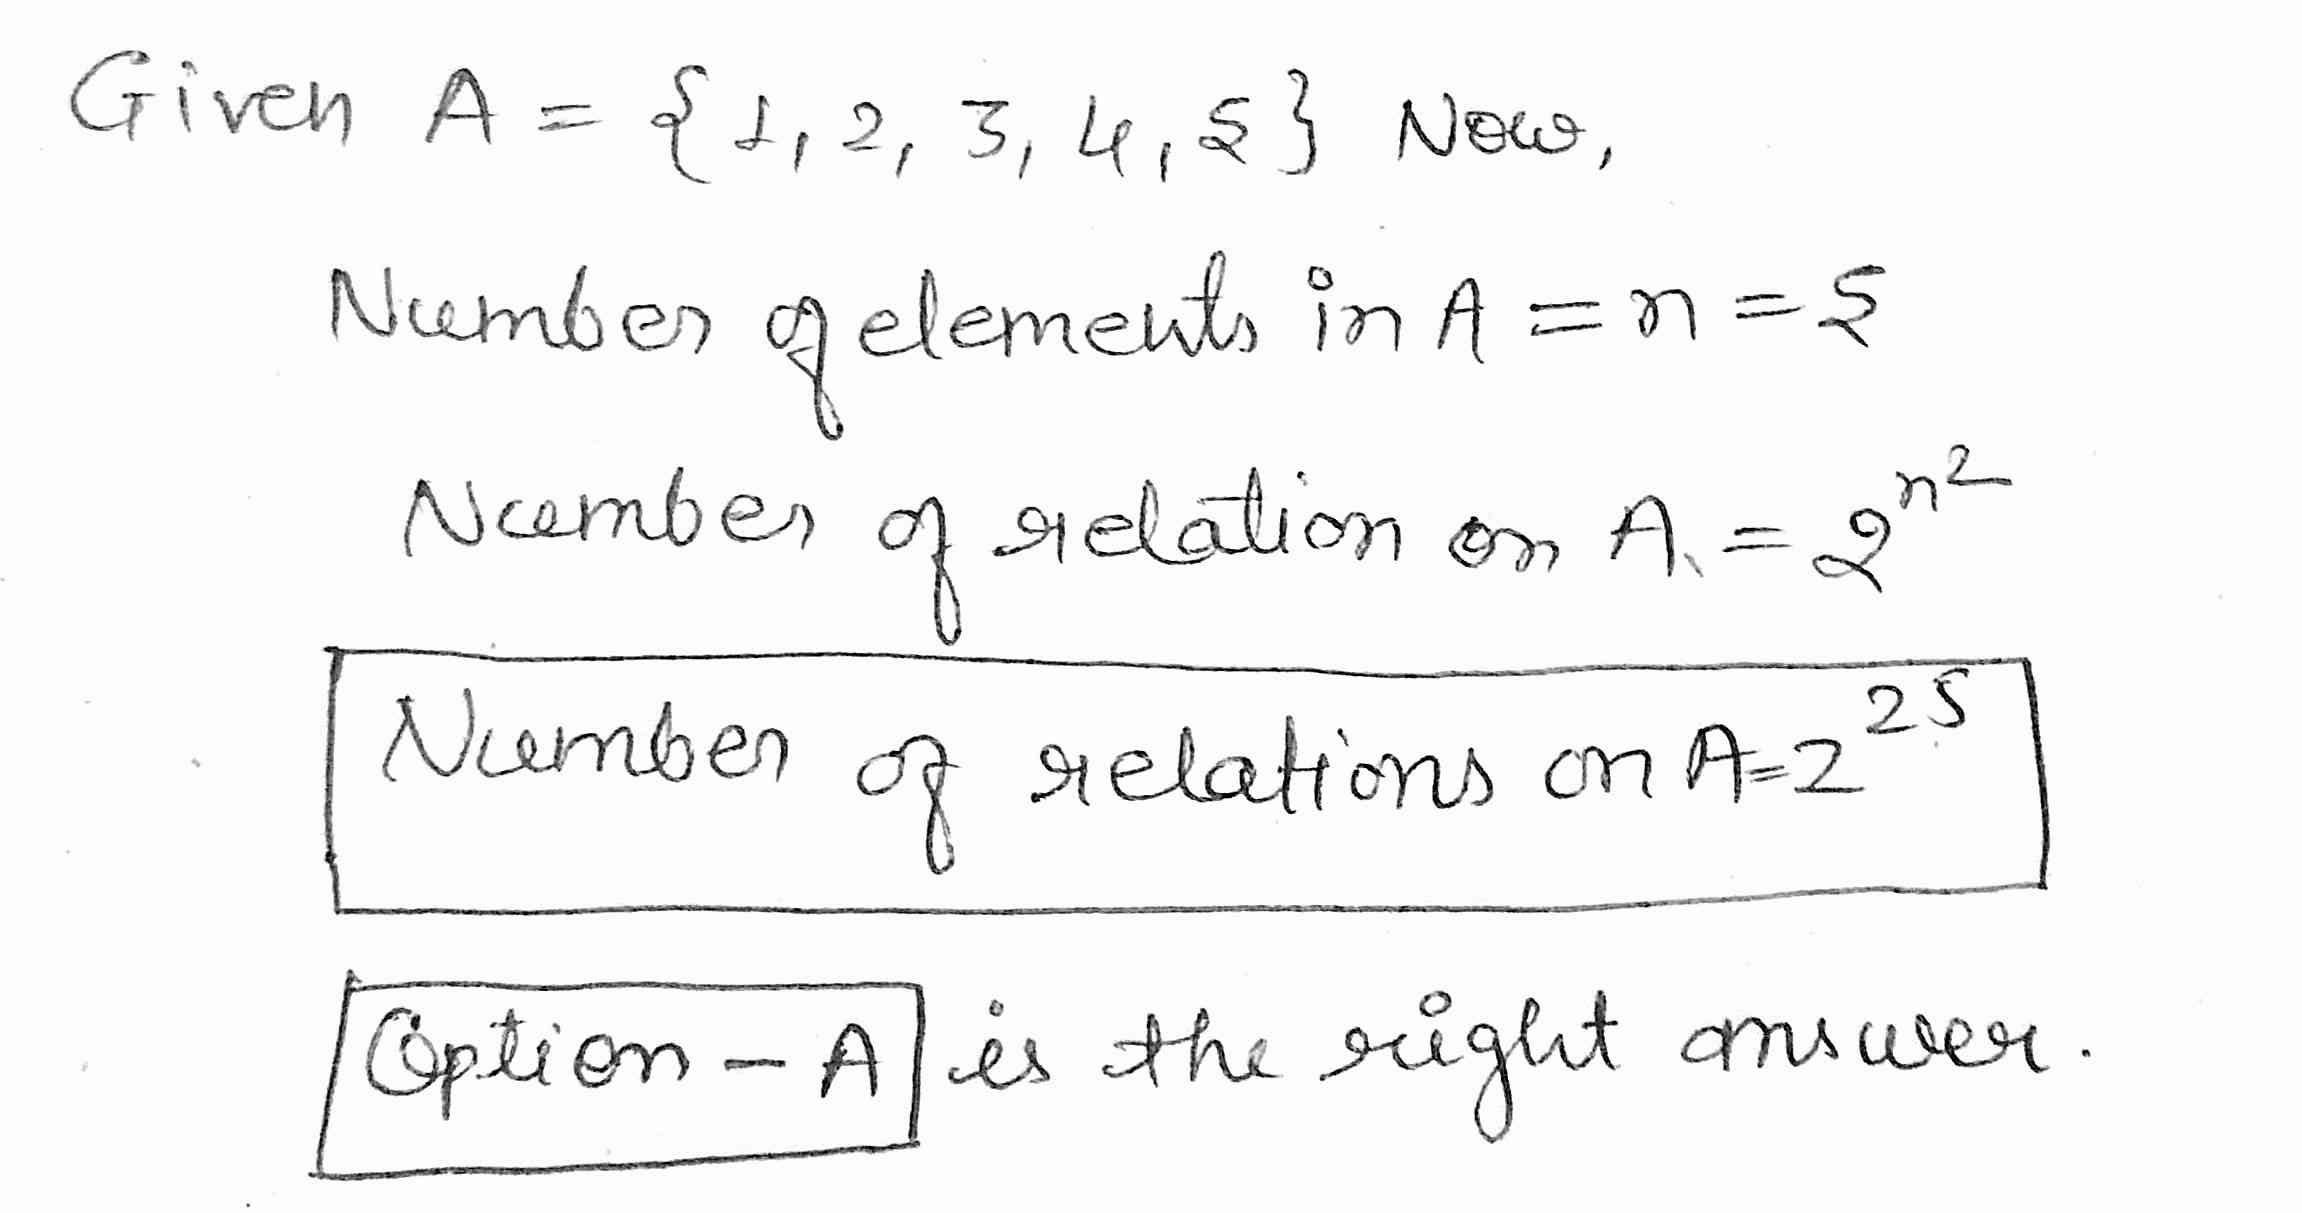 Given A = {1, 2, 3, 4, 5} Now,
Number of elements in A = n = 5
Number of relation on A. = 2^n^2
Number of relations on A = 2^25
Option - A is the right answer.